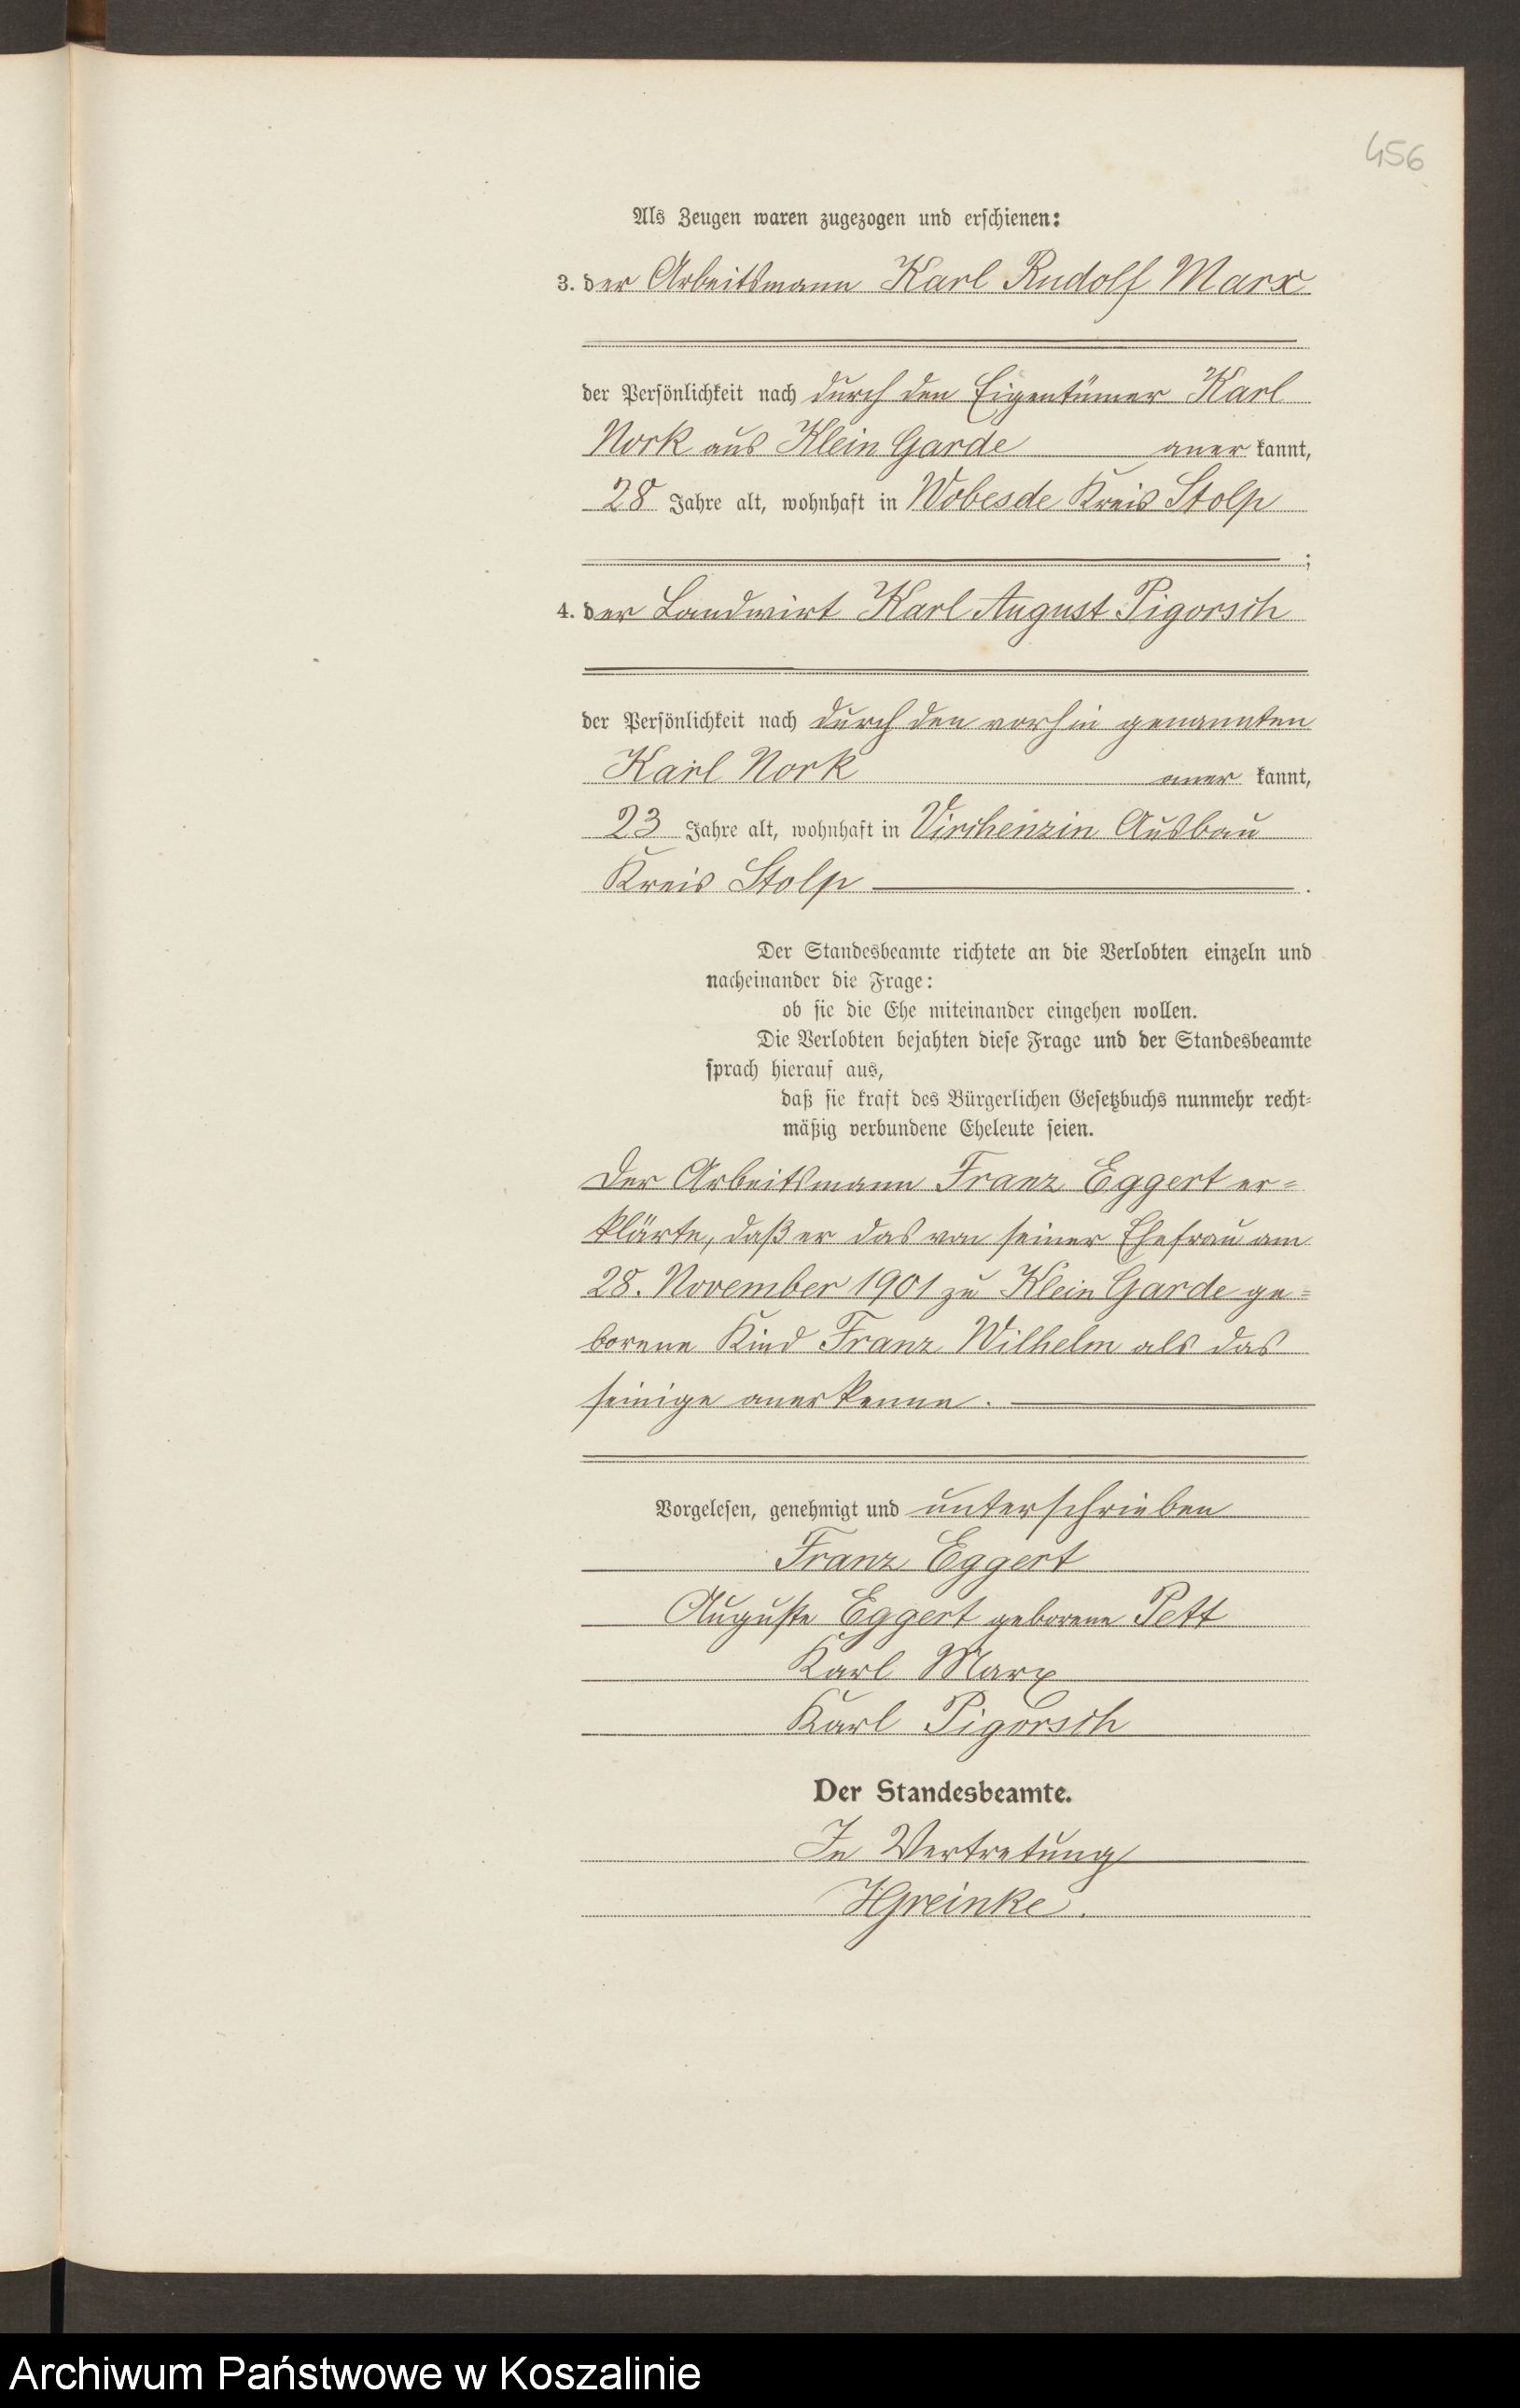 456
Als Zeugen waren zugezogen und erschienen:
3. der Arbeitsmann Karl Rudolf Marx
der Persönlichkeit nach durch den Eigentümer Karl
Nork aus Klein Garde aner kannt,
28 Jahre alt, wohnhaft in Wobesde Kreis Stolp
;
4. der Landwirt Karl August Pigorsch
der Persönlichkeit nach durch den vorhin genannten
Karl Nork aner kannt,
23 Jahre alt, wohnhaft in Virchenzin Ausbau
Kreis Stolp .
Der Standesbeamte richtete an die Verlobten einzeln und
nacheinander die Frage:
ob sie die Ehe miteinander eingehen wollen.
Die Verlobten bejahten diese Frage und der Standesbeamte
sprach hierauf aus,
daß sie kraft des Bürgerlichen Gesetzbuchs nunmehr recht-
mäßig verbundene Eheleute seien.
Der Arbeitsmann Franz Eggert er-
klärte, daß er das von seiner Ehefrau am
28. November 1901 zu Klein Garde ge-
borene Kind Franz Wilhelm als das
seinige anerkenne.
Vorgelesen, genehmigt und unterschrieben
Franz Eggert
Auguste Eggert geborene Pett
Karl Marx
Karl Pigorsch
Der Standesbeamte.
In Vertretung
HGreinke.
Archiwum Państwowe w Koszalinie